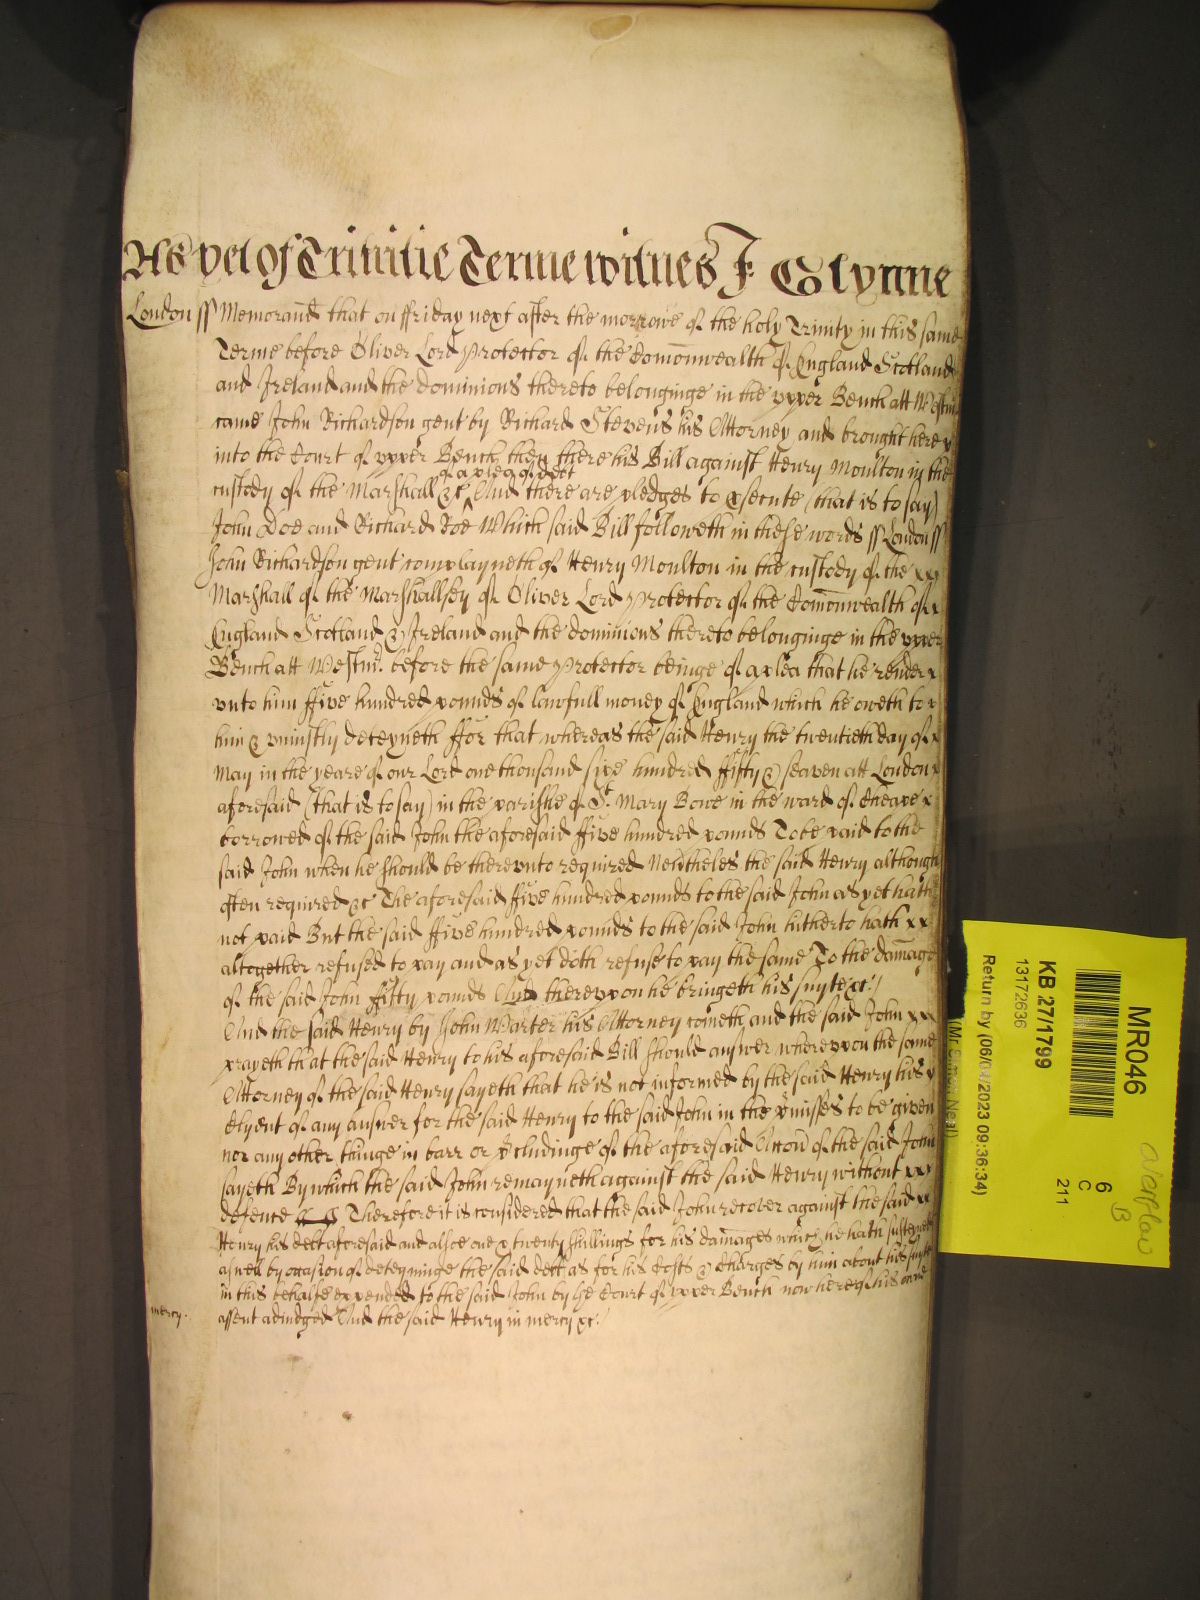 As yet of Trinitie Terme witnes J: Glynne
London ss Memorand that on ffriday next after the morrowe of the holy Trinity in this same
Terme before Oliver Lord Protector of the Comonwealth of England Scotland
and Ireland and the dominions thereto belonginge in the upper Bench att Westmr
came John Richardson gent by Richard Stevens his Attorney and brought here x
into the Court of upper Bench then there his Bill against Henry Moulton in the
of a plea of debt
custody of the Marshall &c And there are pledges to psecute (that is to say)
John Doe and Richard Roe Which said Bill followeth in these words ss London ss
John Richardson gent complayneth of Henry Moulton in the custody of the xx
Marshall of the Marshallsey of Oliver Lord Protector of the Comonwealth of x
England Scotland & Ireland and the dominions thereto belonginge in the upper
Bench att Westmr. before the same Protector beinge of a plea that he render x
unto him ffive hundred pounds of lawfull money of England which he oweth to x
him & uniustly deteyneth ffor that whereas the said Henry the twentieth day of x
May in the yeare of our Lord one thousand sixe hundred ffifty & seaven att London x
aforesaid (that is to say) in the parishe of St. Mary Bowe in the ward of Cheape x
borrowed of the said John the aforesaid ffive hundred pounds To be paid to the
said John when he should be thereunto required Neutheles the said Henry although
often required &c The aforesaid ffive hundred pounds to the said John as yet hath
not paid But the said ffive hundred pounds to the said John hitherto hath xx
altogether refused to pay and as yet doth refuse to pay the same To the damage
of the said John ffifty pounds And thereupon he bringeth his suyte &c:/
And the said Henry by John Warter his Attorney cometh and the said John xx
prayeth that the said Henry to his aforesaid Bill should answer whereupon the same
Attorney of the said Henry sayeth that he is not informed by the said Henry his x
clyent of any answer for the said Henry to the said John in the pmisses to be given
nor any other thinge in barr or pcludinge of the aforesaid Accon of the said John
sayeth By which the said John remayneth against the said Henry without xxx
defence Therefore it is considered that the said John recover against the said xx
Henry his debt aforesaid and alsoe one & twenty shillings for his damages which he hath susteyned
aswell by occasion of deteyninge the said debt as for his Costs & Charges by him about his suyte
in this behalfe expended to the said John by the Court of upper Bench now here of his owne
mercy. assent adiudged And the said Henry in mercy &c:/
MR046
6
C
211
KB 27/1799
13172636
Return by (06/04/2023 09:36:34)
(Mr Simon Neal)
B